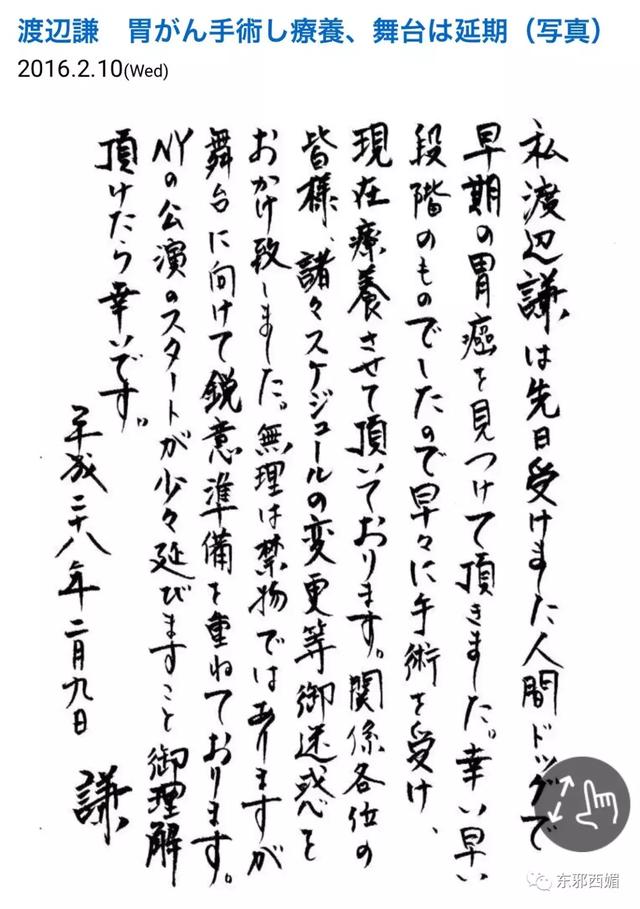 渡辺謙　胃がん手術し療養、舞台は延期（写真）
2016.2.10(Wed)
私渡辺謙は先日受けました人間ドッグで
早期の胃癌を見つけて頂きました。幸い早い
段階のものでしたので早々に手術を受け、
現在療養させて頂いております。関係各位の
皆様、諸々スケジュールの変更等御迷惑を
おかけ致しました。無理は禁物ではありますが
舞台に向けて鋭意準備を重ねております。
NYの公演のスタートが少々延びますこと御理解
頂けたら幸いです。
平成二十八年二月九日
謙
东邪西媚